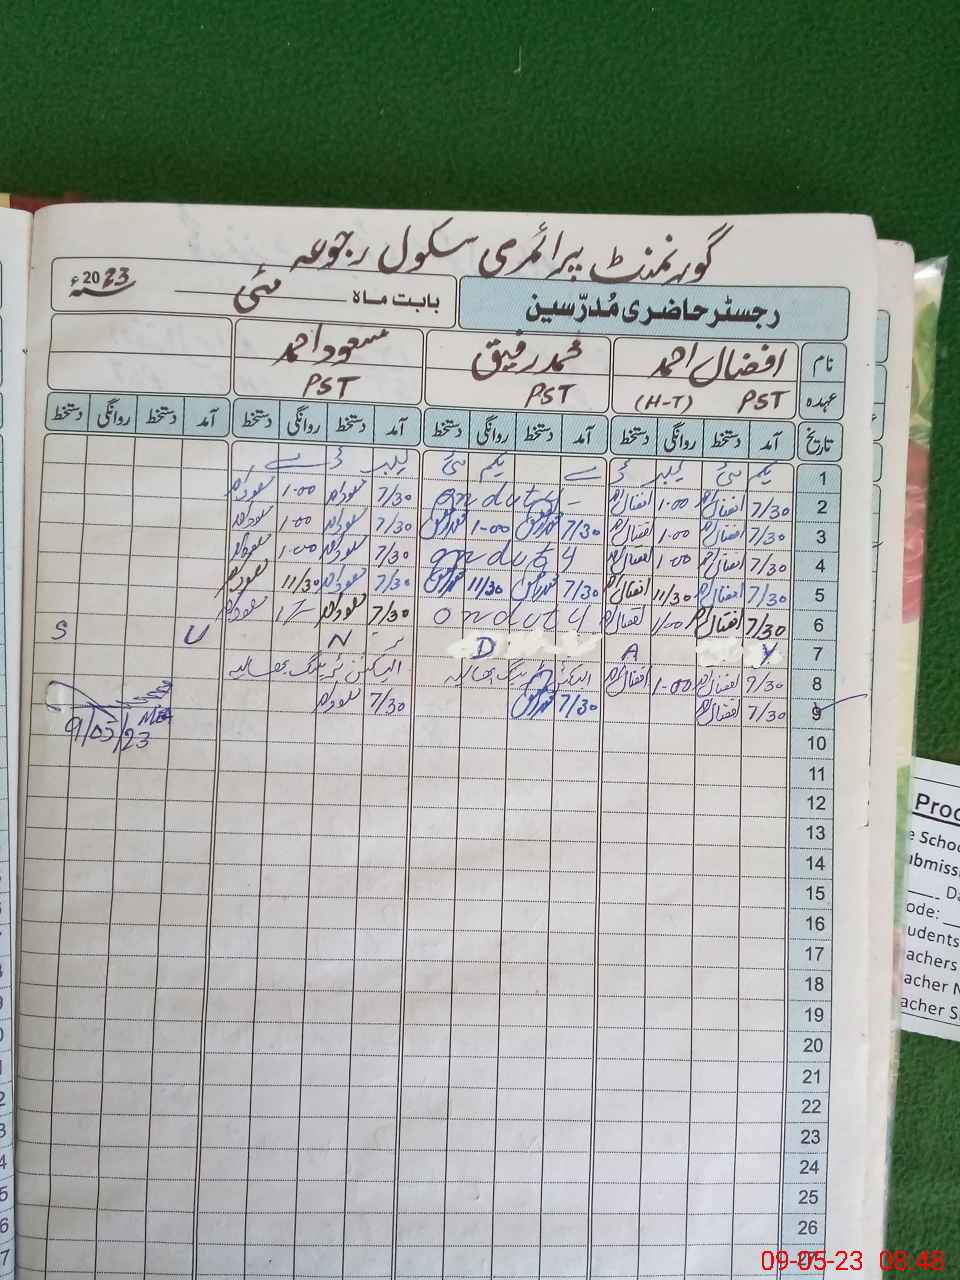 گورنمنٹ پرائمری سکول رجوعہ
رجسٹر حاضری مُدرّسین بابت ماہ مئی 2023ء
نام افضال احمد محمد رفیق مسعود احمد
عہدہ PST (H-T) PST PST
تاریخ آمد دستخط روانگی دستخط آمد دستخط روانگی دستخط آمد دستخط روانگی دستخط آمد دستخط روانگی دستخط
1 یکم مئی لیبر ڈے یکم مئی لیبر ڈے
2 7/30 افضال 1-00 افضال on duty 7/30 مسعود 1-00 مسعود
3 7/30 افضال 1-00 افضال 7/30 1-00 7/30 مسعود 1-00 مسعود
4 7/30 افضال 1-00 افضال on duty 7/30 مسعود 1-00 مسعود
5 7/30 افضال 11/30 افضال 7/30 11/30 7/30 مسعود 11/30 مسعود
6 7/30 افضال 1/00 افضال on duty 7/30 مسعود 1/- مسعود
7 Y A D N U S
8 7/30 افضال 1-00 افضال الیکشن ٹریننگ پھالیہ الیکشن ٹریننگ پھالیہ
9 7/30 افضال 7/30 7/30 مسعود
9/05/23
10
11
12
13
14
15
16
17
18
19
20
21
22
23
24
25
26
27
Proc
e Schoo
ubmissi
Da
ode:
udents
achers
acher N
acher S
09-05-23 08:48